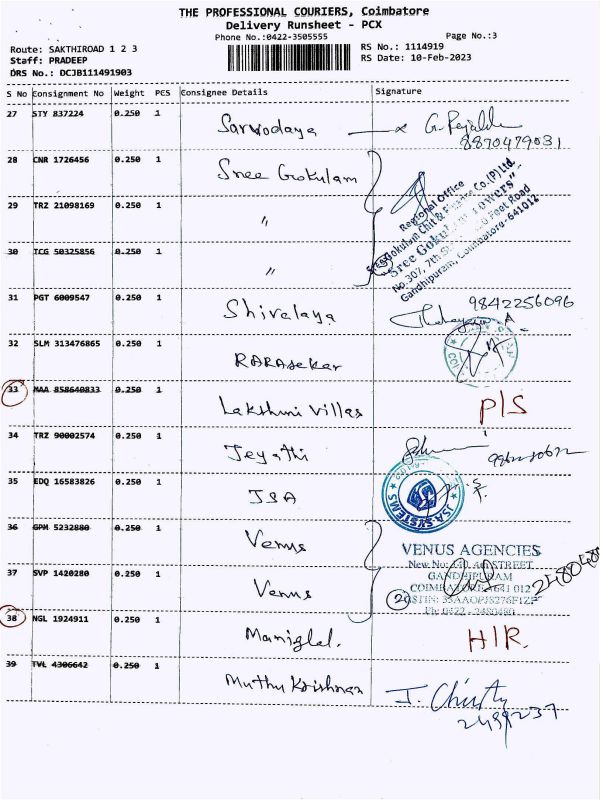 THE PROFESSIONAL COURIERS, Coimbatore
Delivery Runsheet - PCX
Phone No.:0422-3505555
Page No.:3
Route: SAKTHIROAD 1 2 3
RS No.: 1114919
Staff: PRADEEP
RS Date: 10-Feb-2023
DRS No.: DCJB111491903
S No Consignment No Weight PCS Consignee Details Signature
27 STY 837224 0.250 1 Sarvodaya
8870479031
28 CNR 1726456 0.250 1 Sree Gokulam
Regional Office
Sree Gokulam Chit & Finance Co.(P) Ltd.
"Sree Gokulam Towers"
No.307, 7th Feet Road
Gandhipuram, Coimbatore-641012
29 TRZ 21098169 0.250 1 "
30 TCG 50325856 0.250 1 "
31 PGT 6009547 0.250 1 Shivalaya 9842256096
32 SLM 313476865 0.250 1 RARAsekar
33 MAA 858640833 0.250 1 Lakshmi Villas P/S
34 TRZ 90002574 0.250 1 Jeyathi
35 EDQ 16583826 0.250 1 JSA
JSA SYSTEMS
36 GPM 5232880 0.250 1 Venus
VENUS AGENCIES
New No: 4th STREET
GANDHIPURAM
COIMBATORE-641 012
37 SVP 1420280 0.250 1 Venus
GSTIN: 33AAOPJ8276F1ZF
Ph: 0422 - 2480480
2480480
38 NGL 1924911 0.250 1 Maniglal. H/R.
39 TVL 4306642 0.250 1 Muthu Krishnan J. Christy
2499237